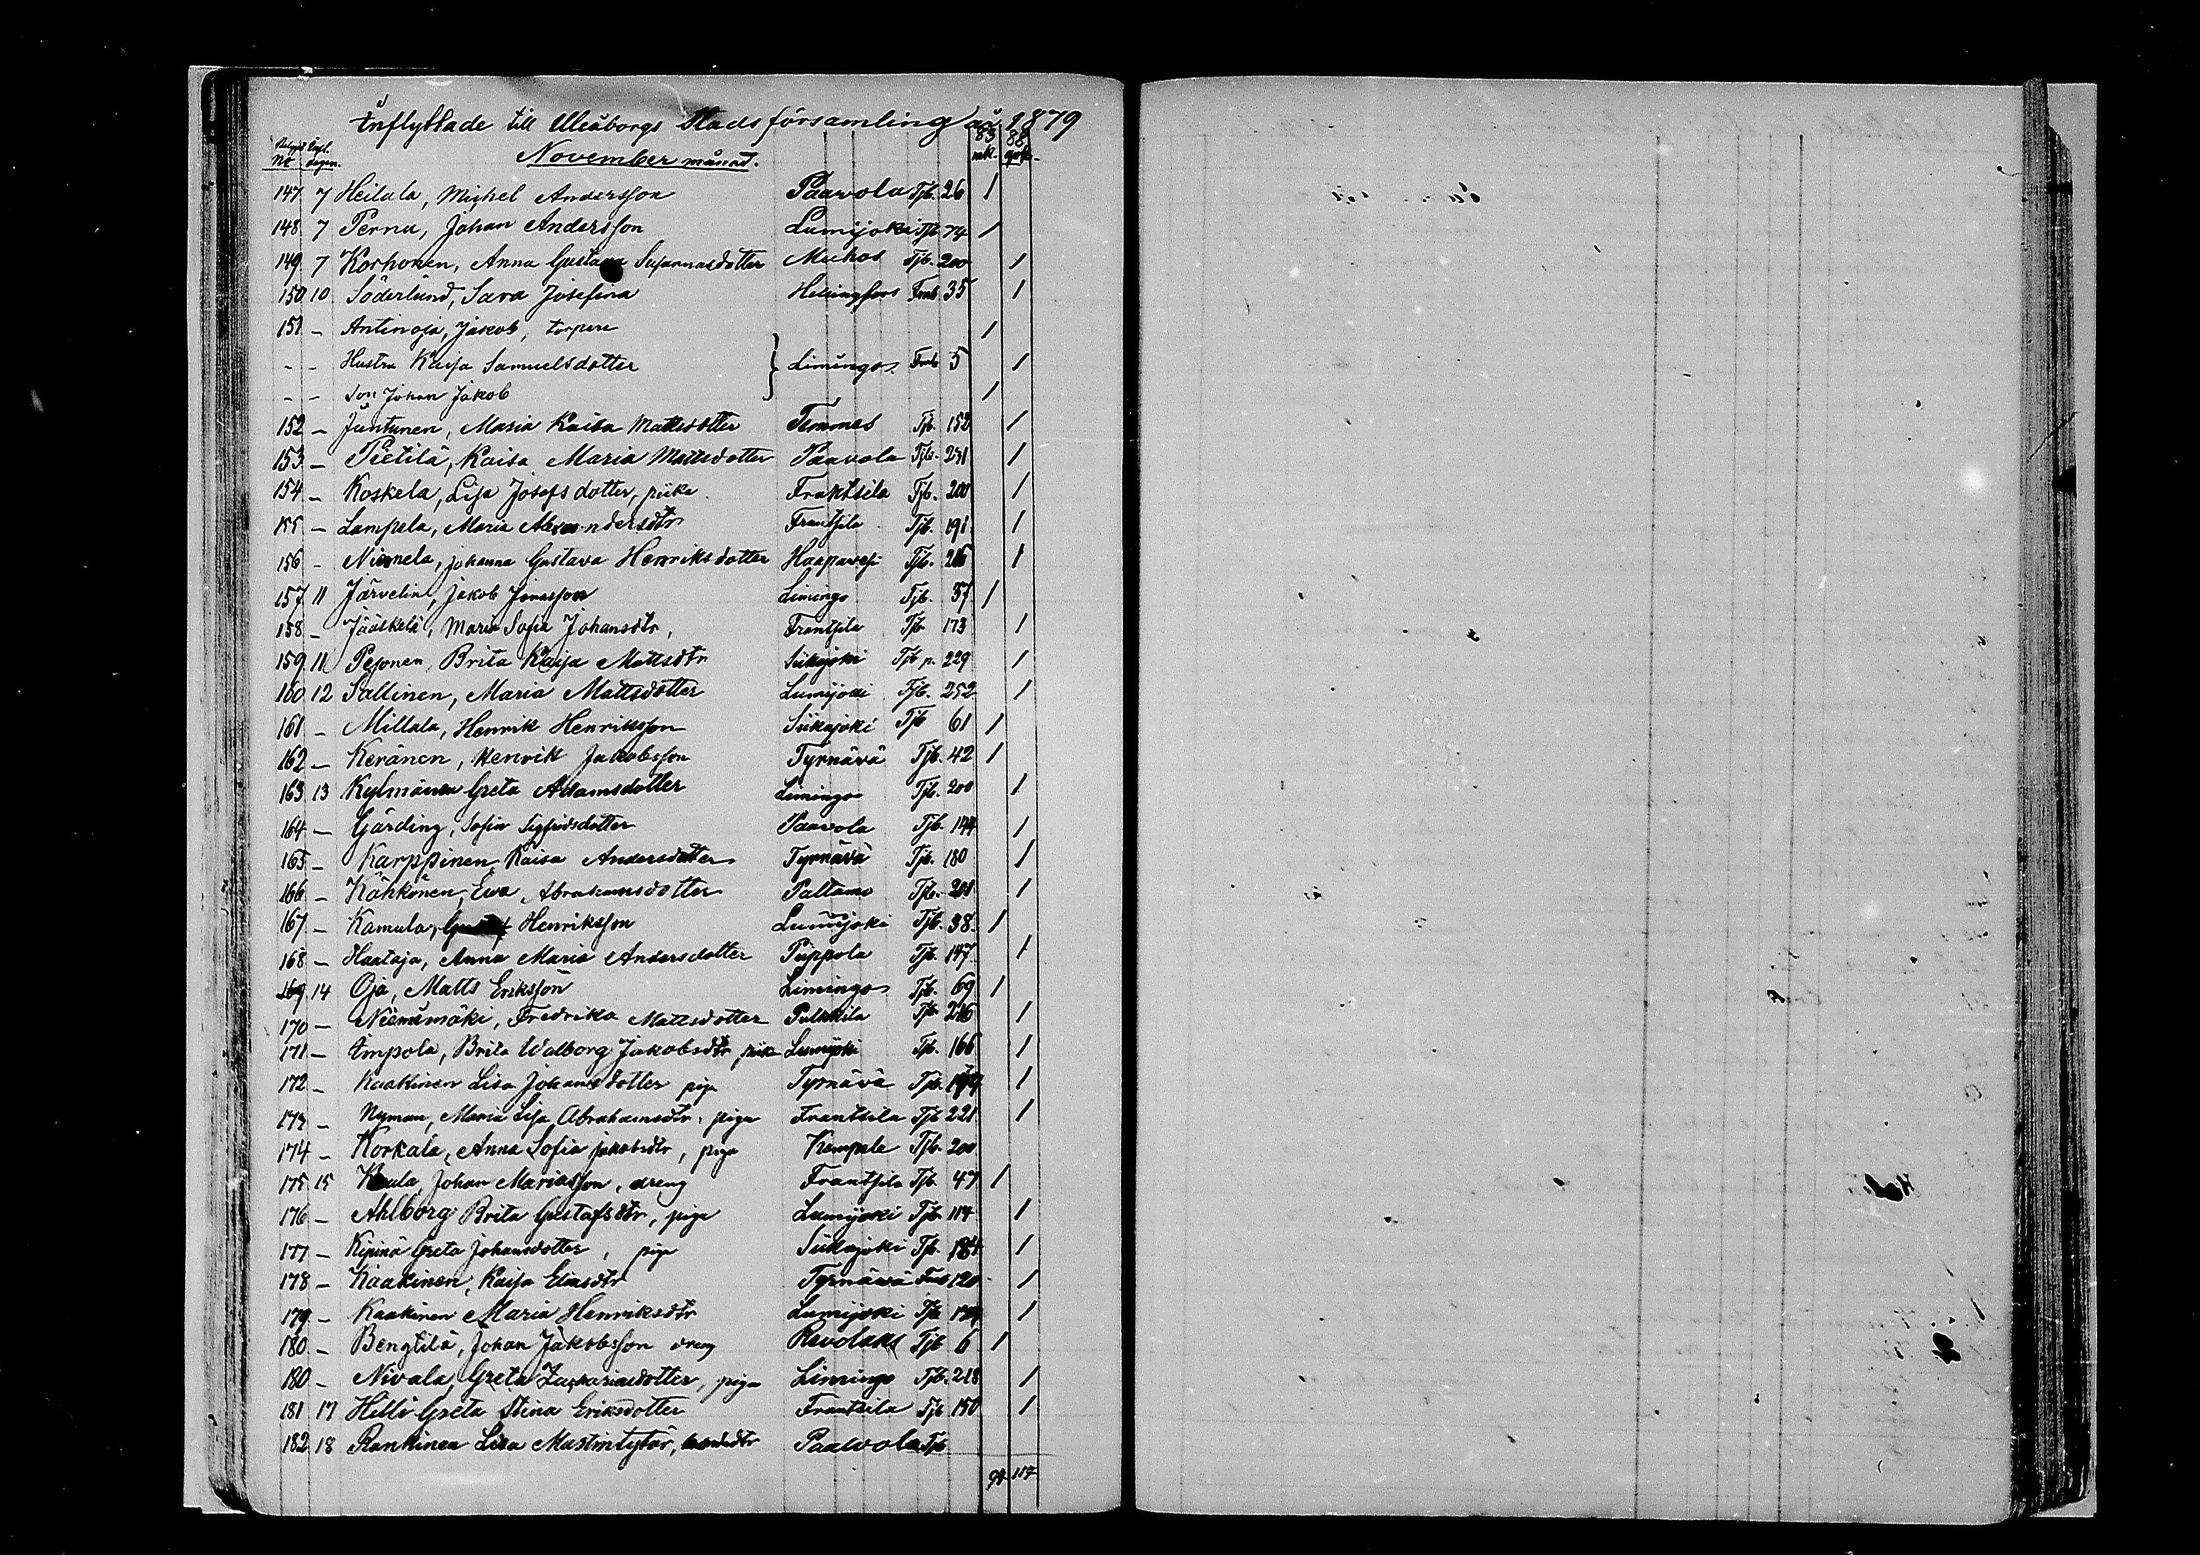 Inflyttade till Uleåborgs Stads församling år 1879
November månad.
83 88
Nt dagen. mk. qvk.
147 7 Heilala, Michel Andersson Paavola Tjb. 26 1
148 7 Pernu, Johan Andersson Lumijoki Tjb 74 1
149 7 Korhonen, Anna Gustava Susannasdotter Muhos Tjb. 200 1
150 10 Söderlund, Sara Josefina Helsingfors Frmb 35 1
151 - Antinoja, Jakob, torpare 1
- - Hustru Kaisa Samuelsdotter } Limingo Frmb 5 1
- - Son Johan Jakob 1
152 - Juntunen, Maria Kaisa Mattsdotter Temmes Tjb. 152 1
153 - Pietilä, Kaisa Maria Mattsdotter Paavola Tjb. 231 1
154 - Koskela, Lisa Josefsdotter, piika Frantsila Tjb. 200 1
155 - Lampela, Maria Alexandersdtr Frantsila Tjb. 191 1
156 - Niemelä, Johanna Gustava Henriksdotter Haapavesi Tjb. 1
157 11 Järvelin, Jakob Jonasson Limingo Tjb. 37 1
158 - Jääskelä, Maria Sofia Johansdtr, Frantsila Tjb 173 1
159 11 Pesonen, Brita Kaisa Mattsdtr Siikajoki Tjb p. 229 1
160 12 Sallinen, Maria Mattsdotter Lumijoki Tjb. 252 1
161 - Millala, Henrik Henriksson Siikajoki Tjb 61 1
162 - Keränen, Henrik Jakobsson Tyrnävä Tjb. 42 1
163 13 Kylmänen Greta Adamsdotter Limingo Tjb. 200 1
164 - Gärding, Sofia Sigfridsdotter Paavola Tjb. 144 1
165 - Karppinen, Kaisa Andersdotter Tyrnävä Tjb. 180 1
166 - Kähkönen, Eva Abrahamsdotter Paltamo Tjb. 201 1
167 - Kamula, Henriksson Lumijoki Tjb. 38 1
168 - Haataja, Anna Maria Andersdotter Piippola Tjb. 147 1
169 14 Oja, Matts Eriksson Limingo Tjb. 69 1
170 - Niemimäki, Fredrika Mattsdotter Pulkkila Tjb 216 1
171 - Impola, Brita Walborg Jakobsdtr piika Lumijoki Tjb. 166 1
172 - Kaakinen Lisa Johansdotter piga Tyrnävä Tjb. 1
173 - Nyman, Maria Lisa Abrahamsdtr, piga Frantsila Tjb 221 1
174 - Korkala, Anna Sofia Jakobsdtr, piga Kempele Tjb. 200
175 15 Johan Mariasson, dreng Frantsila Tjb. 47 1
176 - Ahlborg Brita Gustafsdtr, piga Lumijoki Tjb 114 1
177 - Kipinä Greta Johansdotter, piga Siikajoki Tjb. 184 1
178 - Kaakinen, Kaisa Eliasdtr Tyrnävä Frmb 120 1
179 - Kaakinen Maria Henriksdtr Lumijoki Tjb 1
180 - Bengtilä, Johan Jakobsson dreng Revolaks Tjb 6 1
180 - Nivala, Greta Zachariasdotter, piga Limingo Tjb. 218 1
181 17 Hilli Greta Stina Eriksdotter Frantsila Tjb 150 1
182 18 Rankinen Liisa Martintytär, Paavola Tjb
94 117